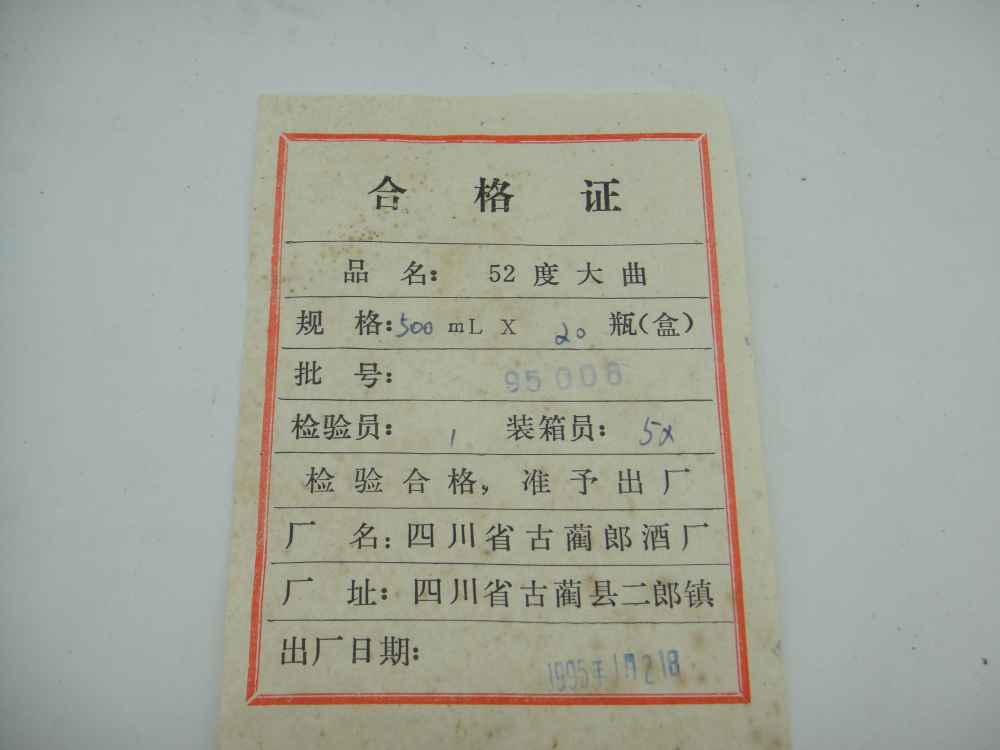 合格证
品名: 52度大曲
规格: 500 mL X 20 瓶(盒)
批号: 95008
检验员: 1 装箱员: 5x
检验合格,准予出厂
厂名: 四川省古蔺郎酒厂
厂址: 四川省古蔺县二郎镇
出厂日期: 1995年1月